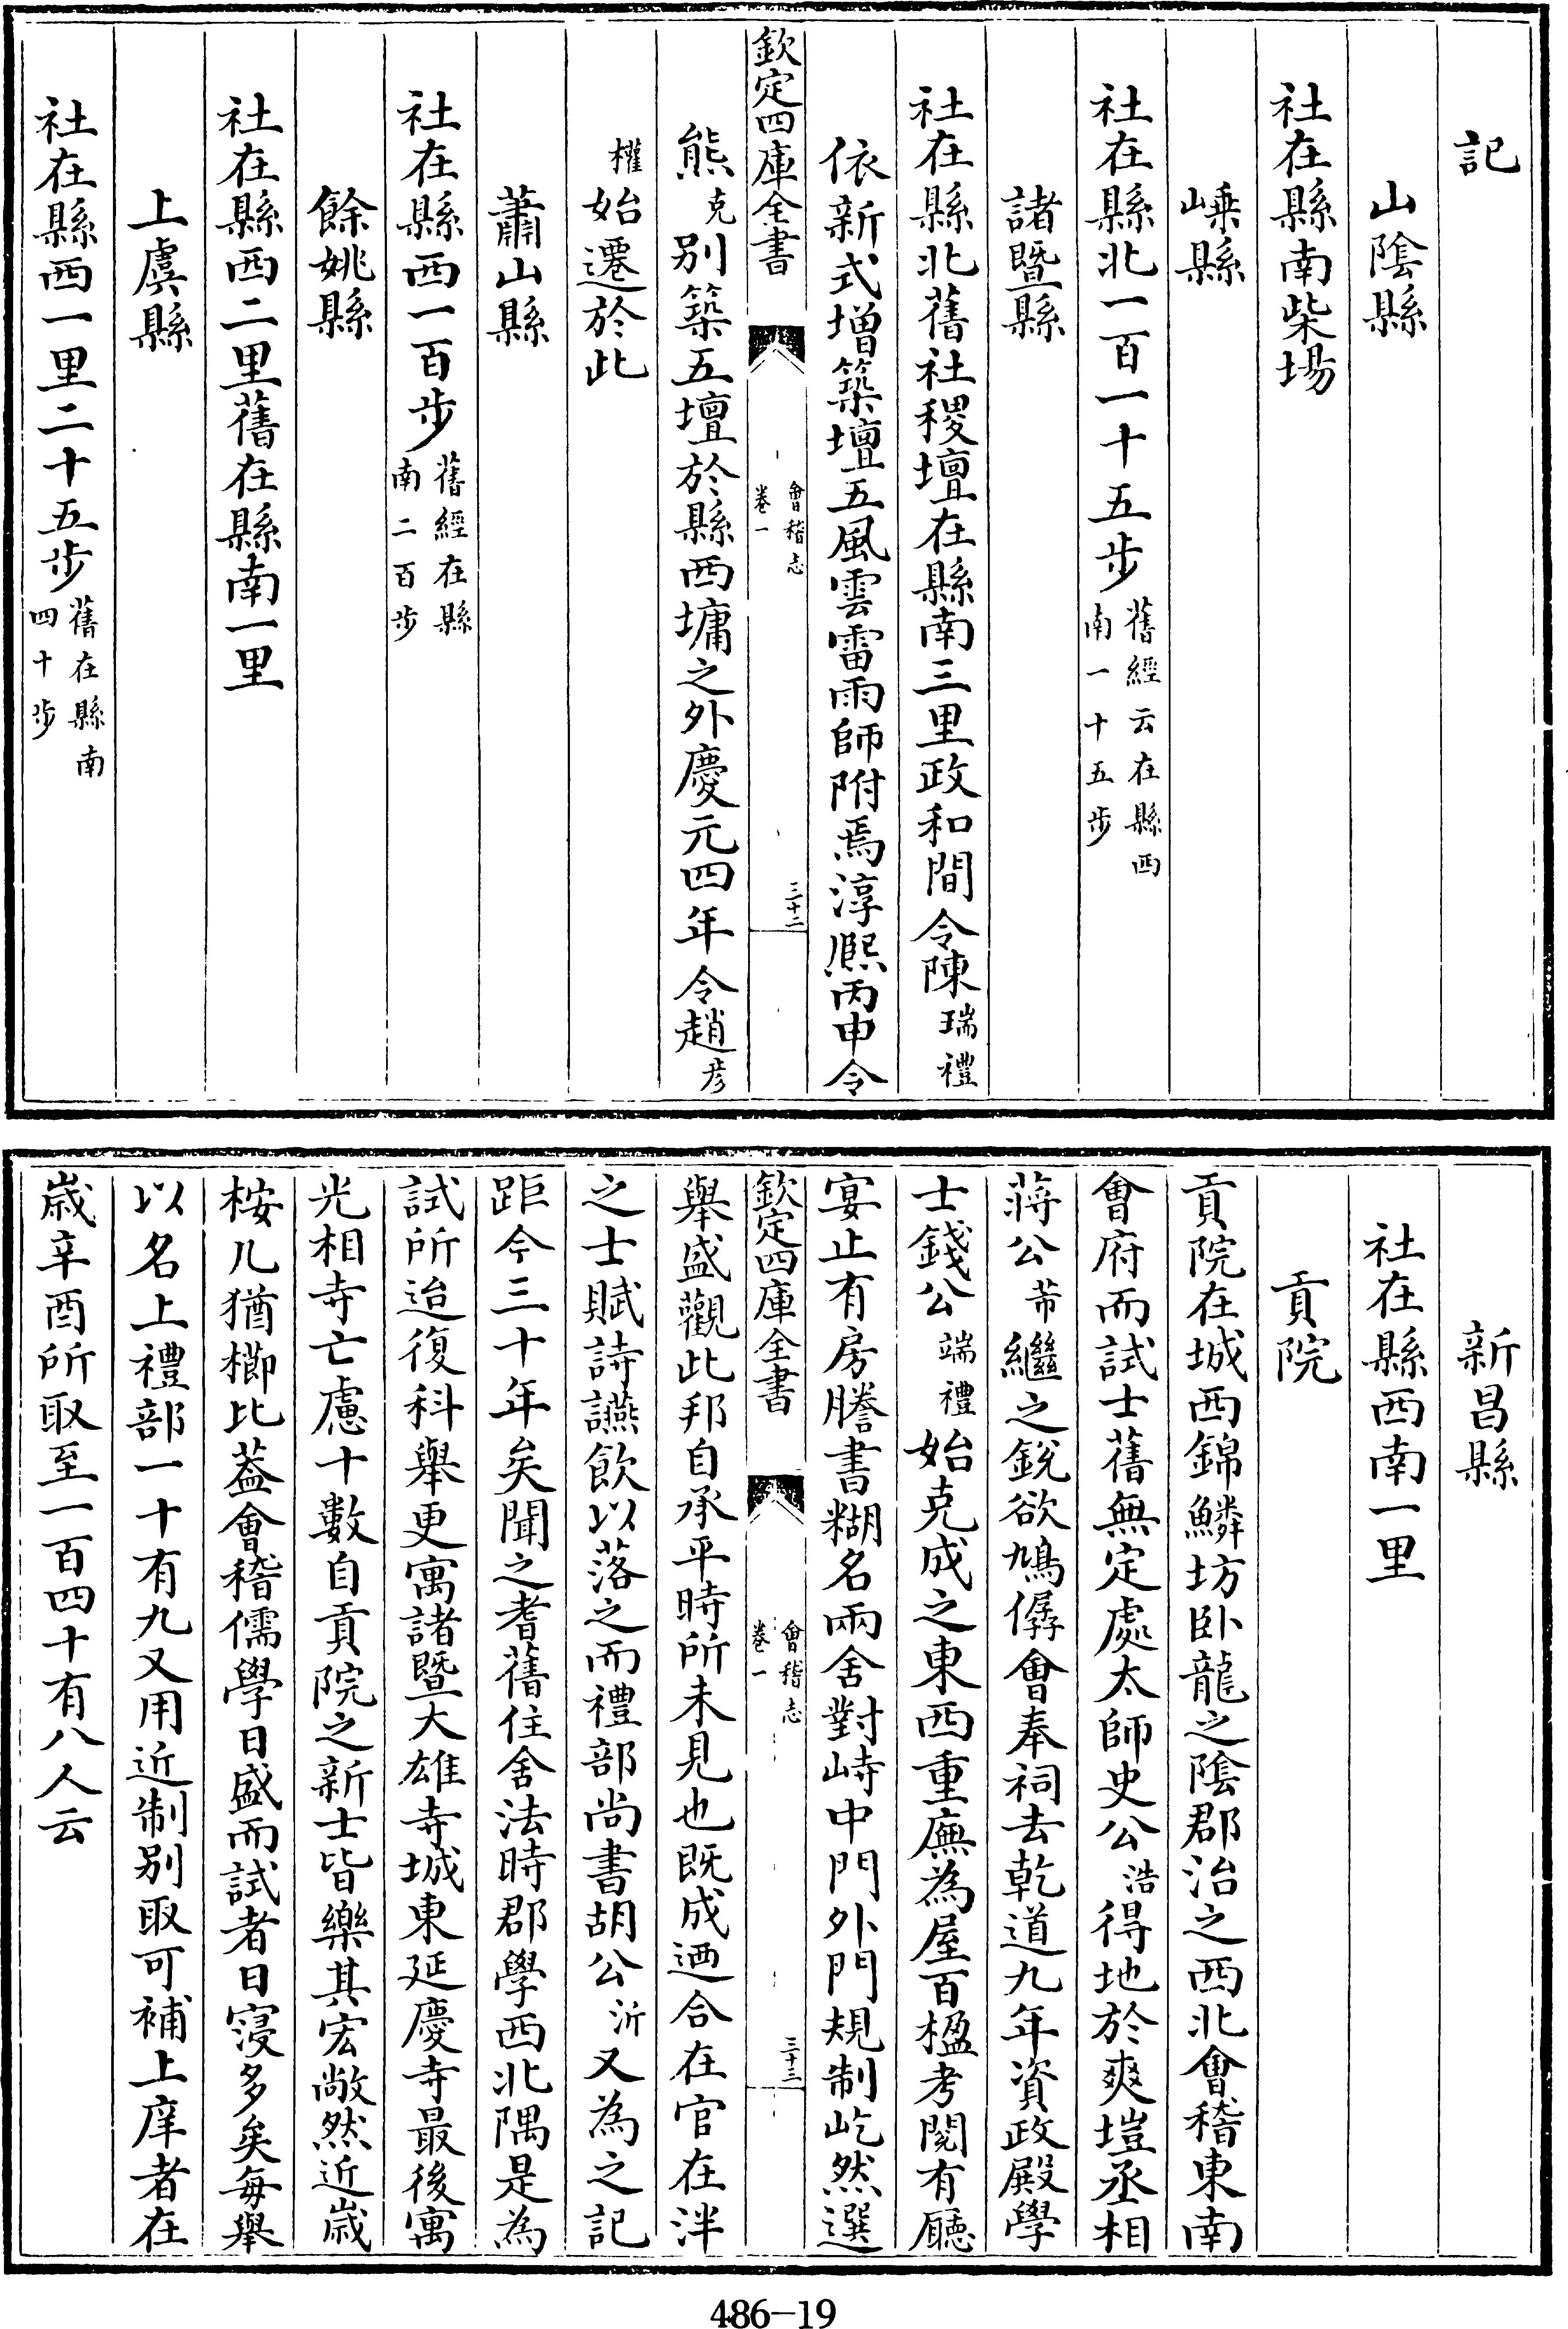 記
山陰縣
社在縣南柴場
嵊縣
社在縣北一百一十五步舊經云在縣西南一十五步
諸暨縣
社在縣北舊社稷壇在縣南三里政和間令陳瑞禮
依新式增築壇五風雲雷雨師附焉淳熈丙申令
欽定四庫全書
會稽志
卷一
三十二
熊克別築五壇於縣西墉之外慶元四年令趙彦
權始遷於此
蕭山縣
社在縣西一百步舊經在縣南二百步
餘姚縣
社在縣西二里舊在縣南一里
上虞縣
社在縣西一里二十五步舊在縣南四十步
新昌縣
社在縣西南一里
貢院
貢院在城西錦鱗坊卧龍之陰郡治之西北會稽東南
會府而試士舊無定處太師史公浩得地於爽塏丞相
蔣公芾繼之銳欲鳩僝會奉祠去乾道九年資政殿學
士錢公端禮始克成之東西重廡為屋百楹考閱有廳
宴止有房謄書糊名兩舍對峙中門外門規制屹然選
欽定四庫全書
會稽志
卷一
三十三
舉盛觀此邦自承平時所未見也既成迺合在官在泮
之士賦詩讌飲以落之而禮部尚書胡公沂又為之記
距今三十年矣聞之耆舊住舍法時郡學西北隅是為
試所迨復科舉更寓諸暨大雄寺城東延慶寺最後寓
光相寺亡慮十數自貢院之新士皆樂其宏敞然近嵗
桉几猶櫛比葢會稽儒學日盛而試者日寖多矣每舉
以名上禮部一十有九又用近制別取可補上庠者在
嵗辛酉所取至一百四十有八人云
486-19